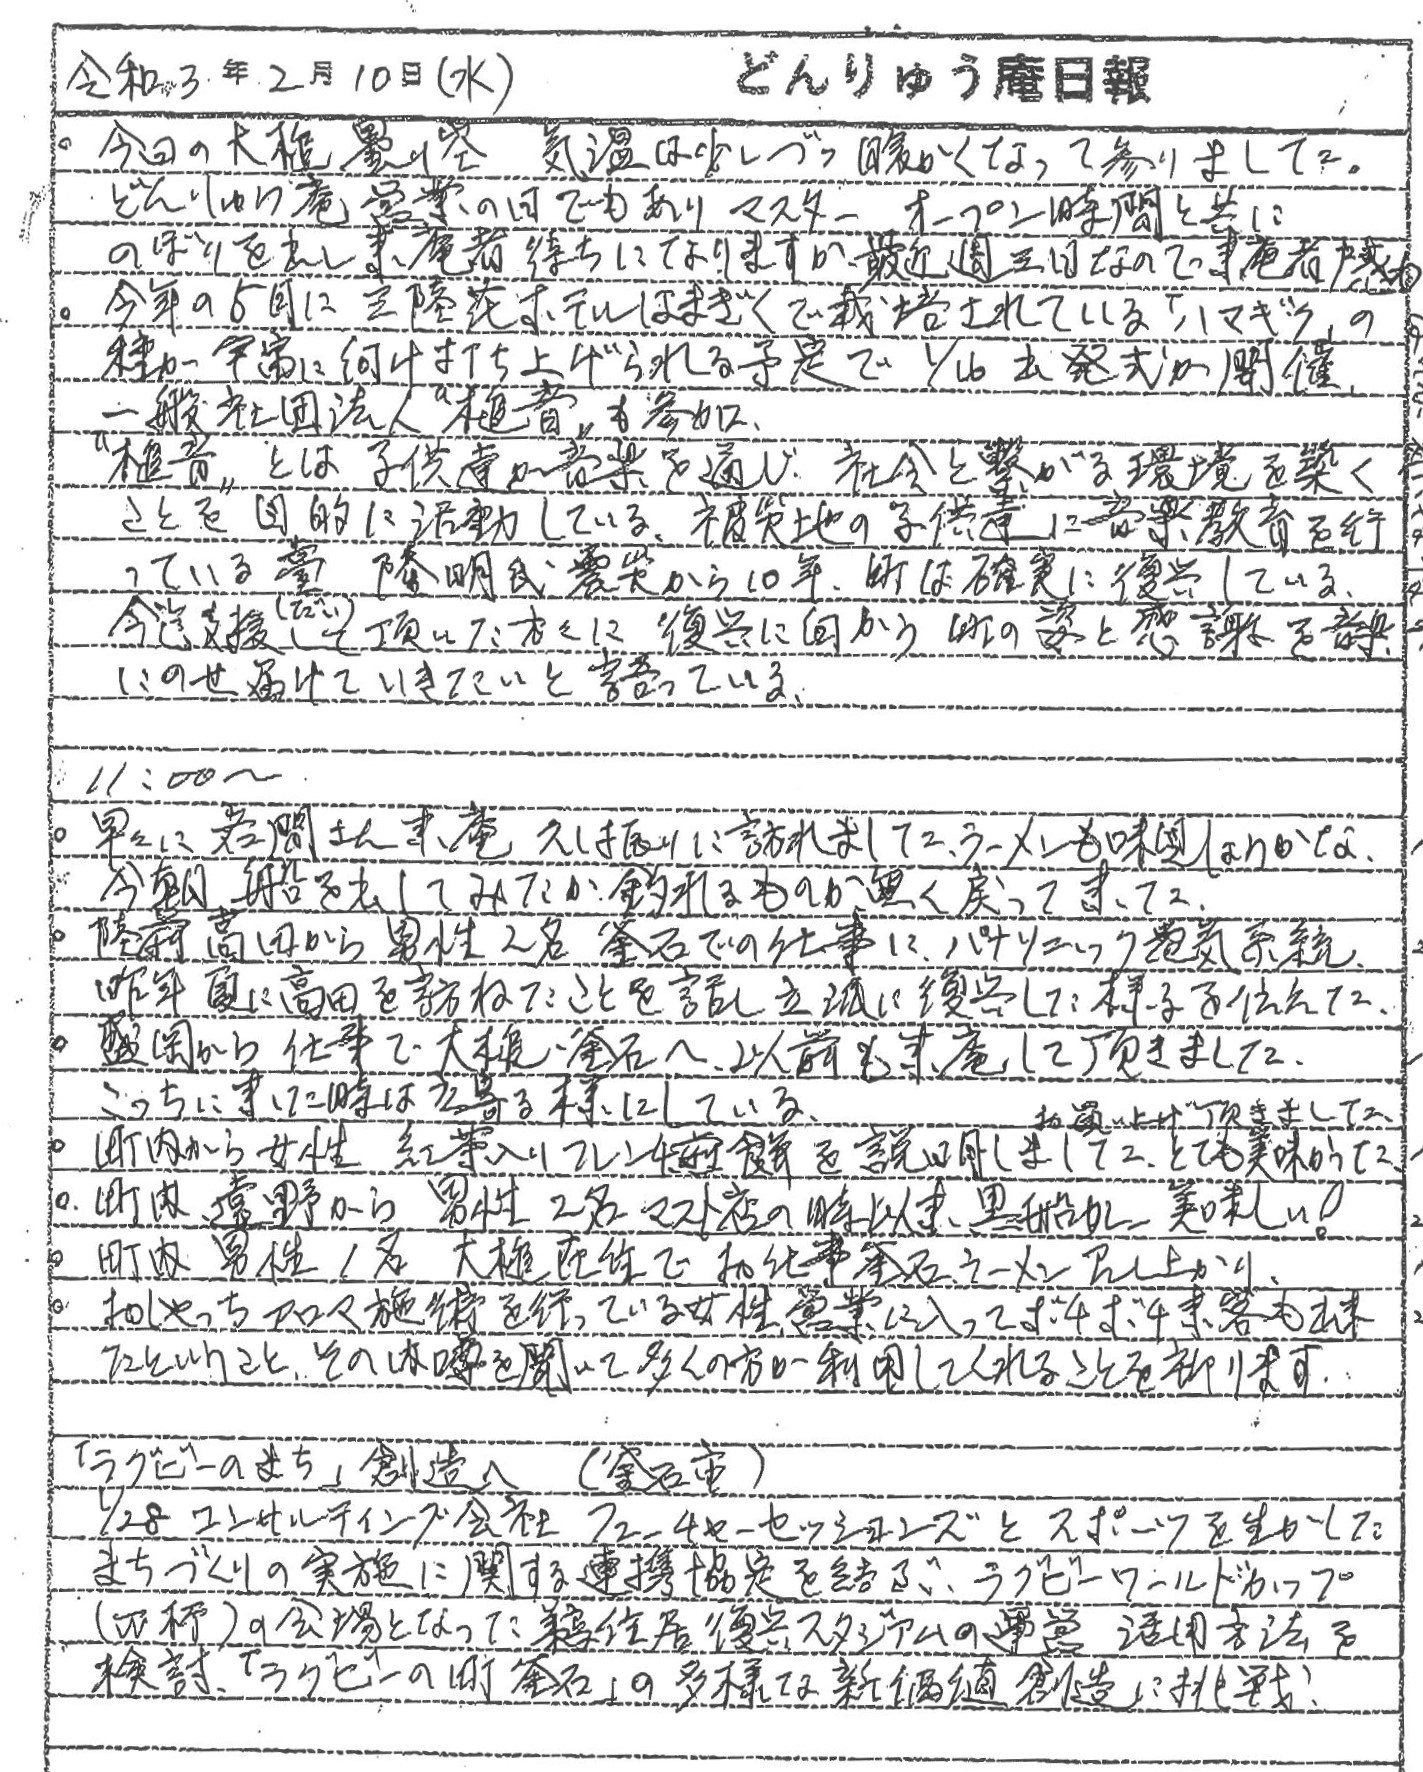 令和3年2月10日(水) どんりゅう庵日報
。今日の大槌 曇り空 気温は少しづつ暖かくなって参りました。
どんりゅう庵営業の日でもあり マスター オープン時間と共に
のぼりを出し来庵者待ちになりますが、最近週三日なので来庵者
。今年の5月に三陸花ホテルはまぎくで栽培されている「ハマギク」の
種が宇宙に向け打ち上げられる予定で 1/16 出発式が開催、
一般社団法人"槌音"も参加、
"槌音"とは 子供達が音楽を通じ 社会と繋がる環境を築く
ことを目的に活動している、被災地の子供達に音楽教育を行
っている 臺 隆明氏 震災から10年、町は確実に復興している、
今迄支援(たい)して頂いた方々に 復興に向かう町の姿と感謝を音楽
にのせ届けていきたいと語っている、
11:00〜
。早々に 若間さん来庵 久し振りに訪れました、ラーメンも味見しょうかな、
今朝 船を出してみたが釣れるものが無く戻って来た、
。陸前高田から男性2名 釜石での仕事に、パナソニック電気系統、
昨年夏に高田を訪ねたことを話し立派に復興した様子を伝えた、
。盛岡から仕事で大槌、釜石へ、以前も来庵して頂きました、
こっちに来た時は立寄る様にしている、
お買い上げ頂きました、
。町内から女性 紅茶入りフレンチ を説明しました、とても美味かった、
。町内、 野から 男性2名 マスト店の時以来、黒船が一 美味しい!
。町内 男性1名 大槌 でお仕事釜石、ラーメン召し上がり、
。おしゃっちアロマ施術を行っている女性、営業に入ってボチボチ来客も出来
たということ、その内噂を聞いて多くの方が利用してくれることを祈ります。
「ラグビーのまち」創造へ (釜石市)
1/28 コンサルティング会社 フューチャーセッションズと スポーツを生かした
まちづくりの実施に関する連携協定を結び、ラグビーワールドカップ
(W杯)の会場となった鵜住居復興スタジアムの運営 活用方法を
検討、「ラグビーの町 釜石」の多様な新価値創造に挑戦!